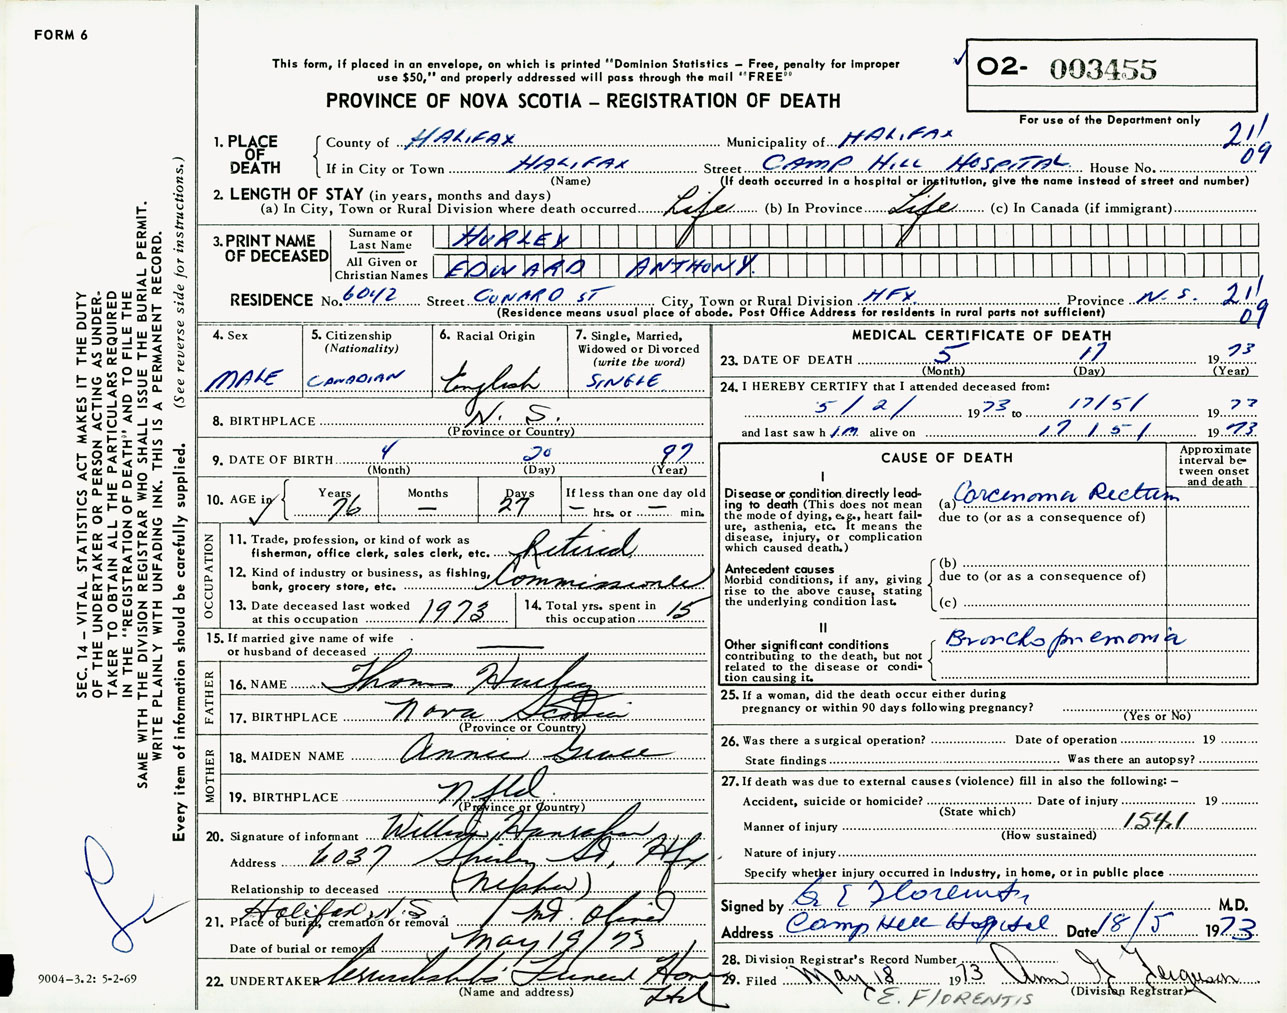 FORM 6
This form, if placed in an envelope, on which is printed "Dominion Statistics – Free, penalty for improper
use $50," and properly addressed will pass through the mail "FREE"
PROVINCE OF NOVA SCOTIA – REGISTRATION OF DEATH
O2- 003455
For use of the Department only
1. PLACE OF DEATH
County of HALIFAX Municipality of HALIFAX
If in City or Town HALIFAX Street CAMP HILL HOSPITAL House No.
(Name) (If death occurred in a hospital or institution, give the name instead of street and number)
211
09
2. LENGTH OF STAY (in years, months and days)
(a) In City, Town or Rural Division where death occurred Life (b) In Province Life (c) In Canada (if immigrant)
3. PRINT NAME OF DECEASED
Surname or Last Name HURLEY
All Given or Christian Names EDWARD ANTHONY
RESIDENCE No. 6042 Street CUNARD ST City, Town or Rural Division HFX Province N.S.
(Residence means usual place of abode. Post Office Address for residents in rural parts not sufficient)
211
09
4. Sex
MALE
5. Citizenship
(Nationality)
CANADIAN
6. Racial Origin
English
7. Single, Married,
Widowed or Divorced
(write the word)
SINGLE
8. BIRTHPLACE N.S.
(Province or Country)
9. DATE OF BIRTH 4 20 97
(Month) (Day) (Year)
10. AGE in
Years 76
Months —
Days 27
If less than one day old
— hrs. or — min.
OCCUPATION
11. Trade, profession, or kind of work as
fisherman, office clerk, sales clerk, etc. Retired
12. Kind of industry or business, as fishing,
bank, grocery store, etc.
13. Date deceased last worked
at this occupation 1973
14. Total yrs. spent in
this occupation 15
15. If married give name of wife
or husband of deceased
FATHER
16. NAME Thomas Hurley
17. BIRTHPLACE Nova Scotia
(Province or Country)
MOTHER
18. MAIDEN NAME Annie Grace
19. BIRTHPLACE Nfld.
(Province or Country)
20. Signature of informant William Hanrahan
Address 6037 Shirley St, Hfx
Relationship to deceased (Nephew)
21. Place of burial, cremation or removal Halifax, N.S Mt. Olivet
Date of burial or removal May 19/73
22. UNDERTAKER Cruikshank's Funeral Home
Ltd
(Name and address)
MEDICAL CERTIFICATE OF DEATH
23. DATE OF DEATH 5 17 1973
(Month) (Day) (Year)
24. I HEREBY CERTIFY that I attended deceased from:
5/2/ 1973 to 17/5/ 1973
and last saw him alive on 17/5/ 1973
CAUSE OF DEATH
Approximate
interval be-
tween onset
and death
I
Disease or condition directly lead-
ing to death (This does not mean
the mode of dying, e.g., heart fail-
ure, asthenia, etc. It means the
disease, injury, or complication
which caused death.)
(a) Carcenoma Rectum
due to (or as a consequence of)
Antecedent causes
Morbid conditions, if any, giving
rise to the above cause, stating
the underlying condition last.
(b)
due to (or as a consequence of)
(c)
II
Other significant conditions
contributing to the death, but not
related to the disease or condi-
tion causing it.
Bronchopnemonia
25. If a woman, did the death occur either during
pregnancy or within 90 days following pregnancy?
(Yes or No)
26. Was there a surgical operation? Date of operation 19
State findings Was there an autopsy?
27. If death was due to external causes (violence) fill in also the following: –
Accident, suicide or homicide? Date of injury 19
(State which)
Manner of injury 154.1
(How sustained)
Nature of injury
Specify whether injury occurred in industry, in home, or in public place
Signed by E Florentis M.D.
Address Camp Hill Hospital Date 18/5 1973
28. Division Registrar's Record Number
29. Filed May 18 1973 Ann G Ferguson
(Division Registrar)
(E. FLORENTIS
SEC. 14 – VITAL STATISTICS ACT MAKES IT THE DUTY
OF THE UNDERTAKER OR PERSON ACTING AS UNDER-
TAKER TO OBTAIN ALL THE PARTICULARS REQUIRED
IN THE "REGISTRATION OF DEATH" AND TO FILE THE
SAME WITH THE DIVISION REGISTRAR WHO SHALL ISSUE THE BURIAL PERMIT.
WRITE PLAINLY WITH UNFADING INK. THIS IS A PERMANENT RECORD.
Every item of information should be carefully supplied. (See reverse side for instructions.)
9004–3.2: 5-2-69